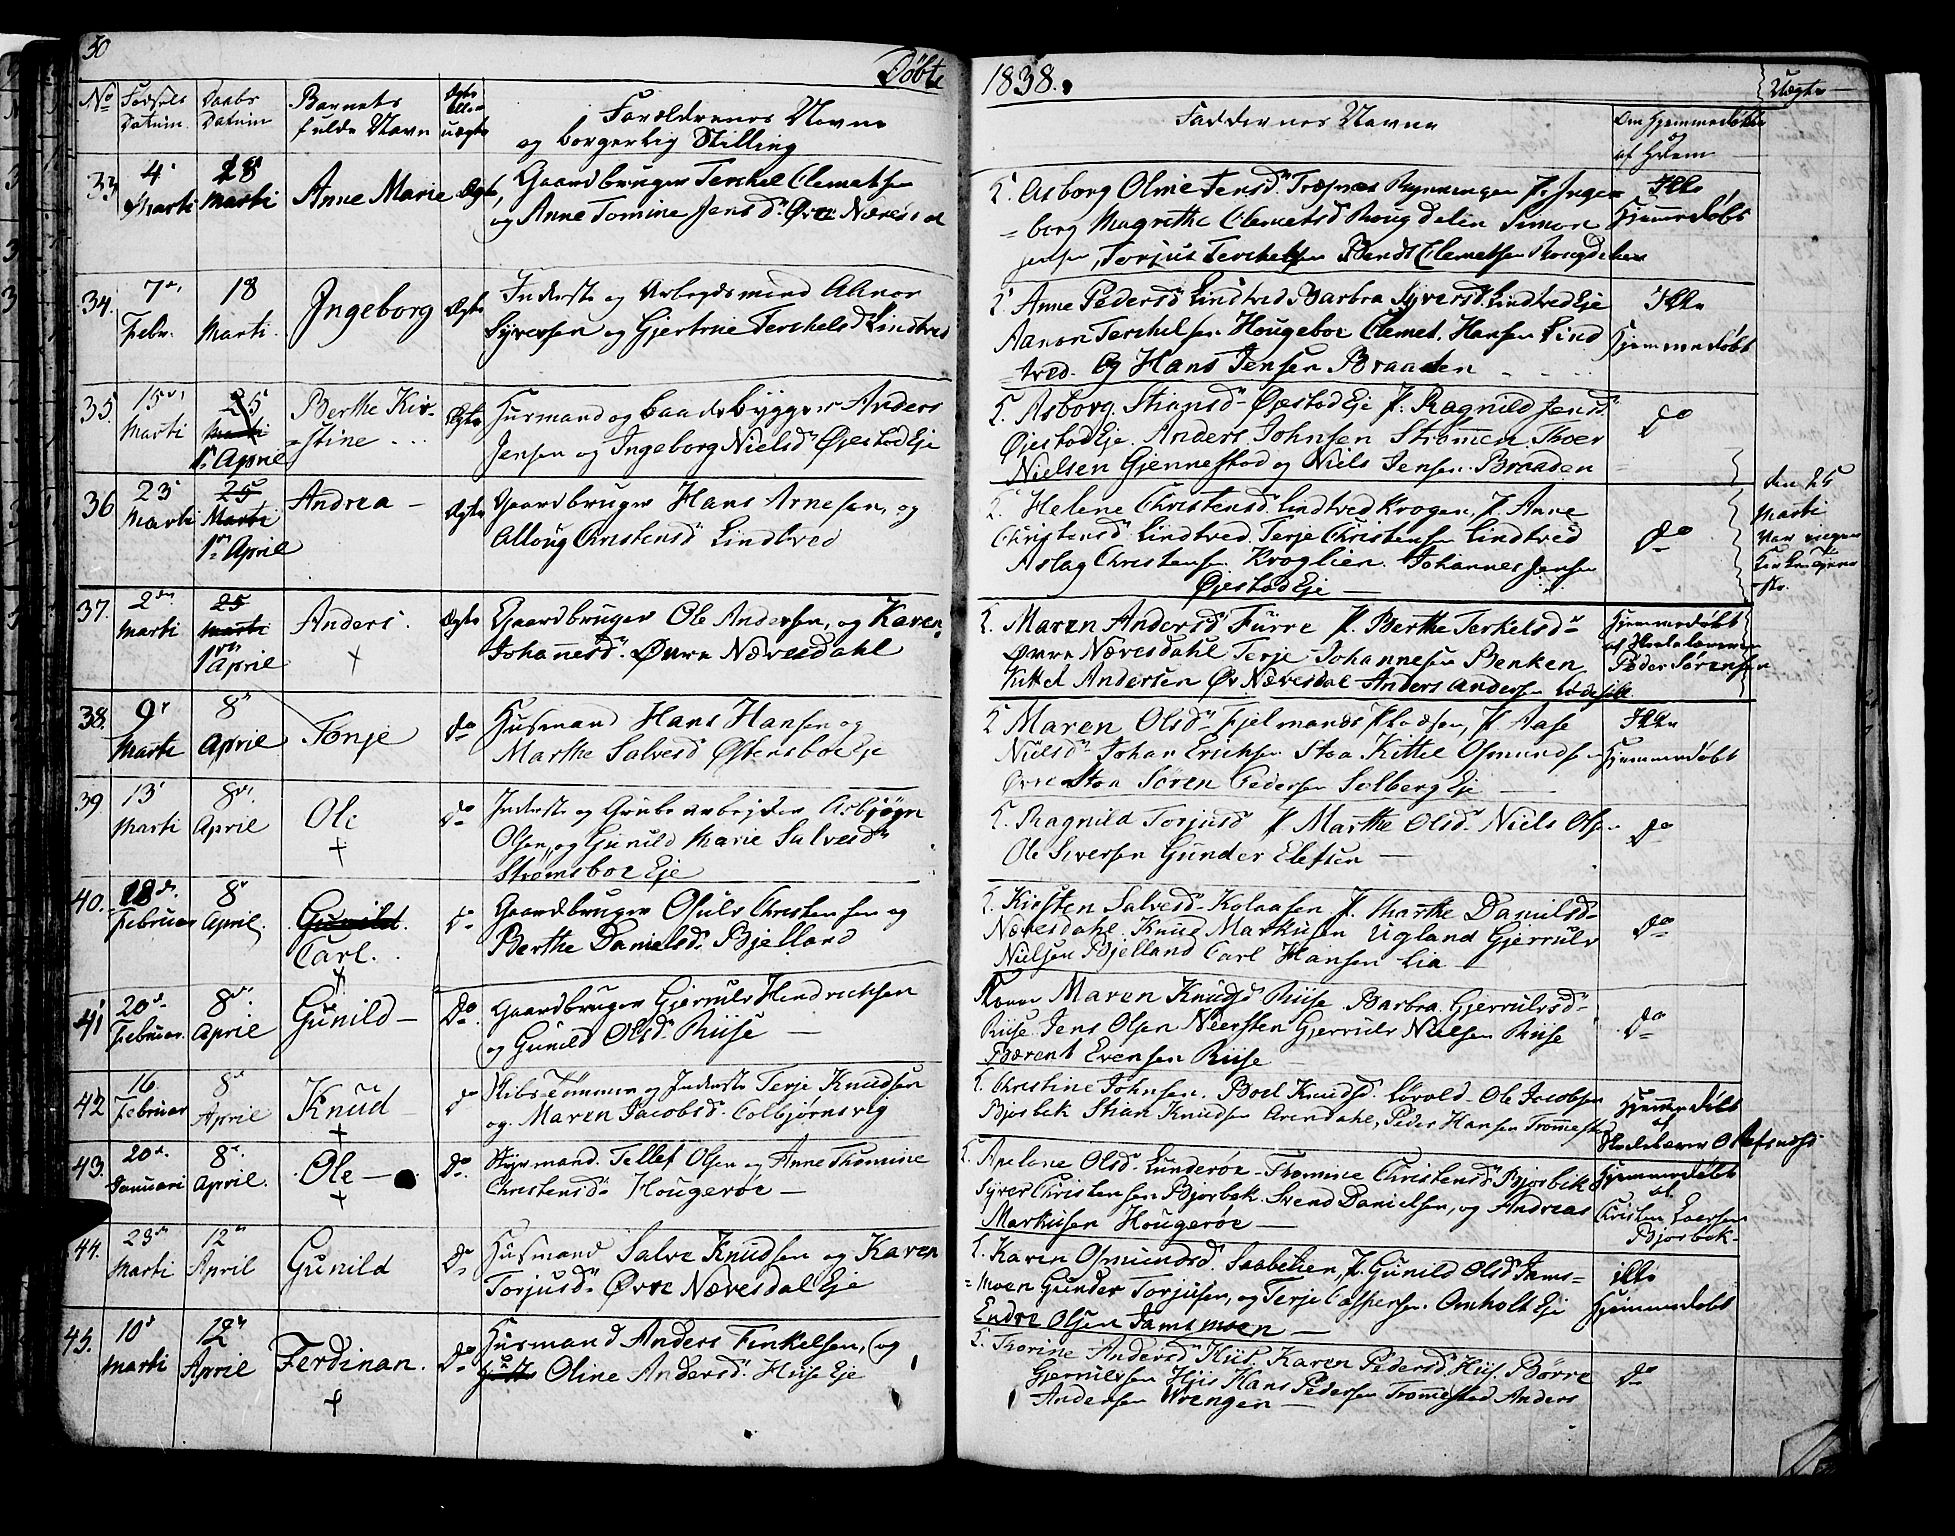 30
Døbte
1838.
No Fødsels Datum. Daabs Datum Barnets fulde Navn Ægte eller uægte Forældrenes Navne og borgerlig Stilling
Faddernes Navne Om Hjemmedøbt og af Hvem Uægte
33 4 Marti 18 Marti Anne Marie Ægte
Gaardbruger Terchel Clemetsen
og Anne Tomine Jensd. Øvre Næresdal
Asborg Oline Jensd.
borg Magrethe Clemetsd Rougdelin Simon
Jensen, Torjus Terchelsen Berndt Clemetsen Rougdelien
Ikke
Hjemmedøbt
34. 7 Febr. 18 Marti Ingeborg Ægte
Inderste og Arbeidsmand Aanon
Syversen og Gjertrue Terchelsd Lindtved
Anne Pedersd Lindtved Barbra Syversd. Lindtved Eje
Aanon Terchelsen Hougeboe Clemet Hansen Lind
tved. Og Hans Jensen Braaden
Ikke
Hjemmedøbt
35. 15 Marti 25 Marti 1. April Berthe Kirstine Ægte
Husmand og baadebygger Anders
Jensen og Ingeborg Nielsd Øjestad Eje
Asborg Stiansd. Øjestad Eje P. Ragnild Jensd
Øjestad Eje. Anders Johnsen Strømmen Thoer
Nielsen Gjennestad og Niels Jensen Braaden
do
36 23 Marti 25 Marti 1. April Andrea Ægte
Gaardbruger Hans Arnesen, og
Alloug Christensd Lindtved
Helene Christensd. Lindtved Krogen, P. Anne
Christensd. Lindtved. Terje Christensen Lindtved
Aslag Christensen Kroglien. Johannes Jensen
Øjestad Eje
do
den 25
Marti
var ingen
37. 2 Marti 25 Marti 1 April Anders Ægte
Gaardbruger Ole Andersen, og Karen
Johannesd. Øvre Næresdahl
Maren Andersd Furre P. Berthe Terkelsd
Øvre Næresdahl Terje Johannesen Benken
Kittel Andersen Øv Næresdal Anders Andersen
Hjemmedøbt
af Skolelæreren
Peder Sørensen
38. 9 Marti 8 April Tonje do
Husmand Hans Hansen og
Marthe Salvesd Østensboe Eje
Maren Olsd. Fjelmands Pladsen, P. Aase
Nielsd. Johan Erichsen Staa Kittil Osmundsen
Øvre Staa Søren Pedersen Solberg Eje
Ikke
Hjemmedøbt
39. 13 Marti 8 April Ole do
Inderste og Grubearbejder Asbjøgn
Olsen, og Gunild Marie Salvesd
Strømsboe Eje
Ragnild Torjusd P. Marthe Olsd. Niels Olsen
Ole Siversen Gunder Elefsen
do
40. 18 Februar 8 April Gunild. Carl. do
Gaardbruger Osuls Christensen og
Berthe Danielsd. Bjelland
Kirsten Salvesd. Kolaasen P. Marthe Danielsd
Næresdahl. Knud Markusen Ugland Gjerruls
Nielsen Bjelland Carl Hansen Lia
do
41 20 Februar. 8 April Gunild do
Gaardbruger Gjerruls Hendrichsen
og Gunild Olsd. Riise
Maren Knudsd Riise Barbra Gjerrulsd
Riise. Jens Olsen Neersten Gjerruls Nielsen Riise
Bærent Evensen Riise
do
42 16 Februar 8 April Knud do
Skibstømmer og Inderste Terje Knudsen
og Maren Jacobsd. Colbjørnsvig
Christine Johnsen. Boel Knudsd. Lørvold. Ole Jacobsen
Bjorbek Stian Knudsen Arendahl, Peder Hansen Tromøe
Hjemmedøbt
af
43. 20 Januari 8 April. Ole do
Styrmand. Tellef Olsen og Anne Thomine
Christensd. Hougerøe
Apelone Olsd. Lunderøe Thomine Christensd. Bjorbek
Syver Christensen Bjorbek. Svend Danielsen, og Andreas
Markusen Hougerøe
Hjemmedøbt
af
Bjorbek
44. 23 Marti 12 April Gunild do
Husmand Salve Knudsen og Karen
Torjusd. Øvre Næresdal Eje
Karen Osmundsd. P. Gunild Olsd Jams-
moen Gunder Torjusen, og Terje Caspersen. Omholt Eje
Endre Olsen Jamsmoen
ikke
Hjemmedøbt
45. 10 Marti 12 April Ferdinan. do
Husmand Anders Finkelsen, og
Oline Andersd. Huse Eje
Torine Andersd. Karen Pedersd. Børre
Gjerrulsen Hans Pedersen Tromestad Anders
Andersen Wrengen
do